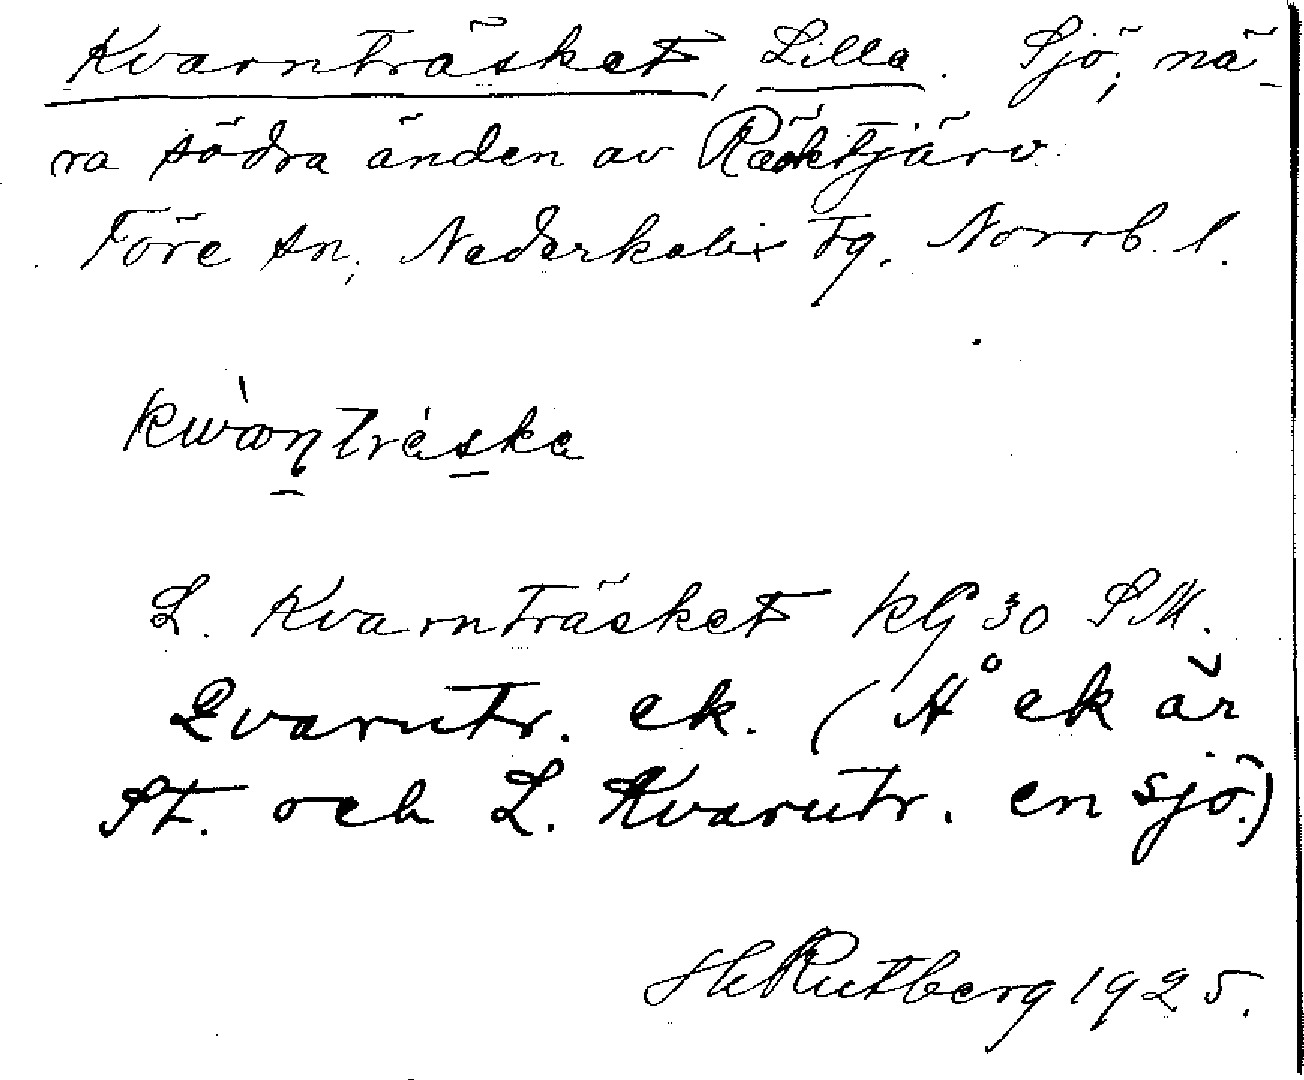 Kvarnträsket, Lilla. Sjö, nä-
ra södra änden av Räktjärv.
Töre sn, Nederkalix tg. Norrb. l.
L. Kvarnträsket KG 30 SM.
Qvarntr. ek. (Å ek är
St. och L. Kvarntr. en sjö.)
Rutberg 1925.